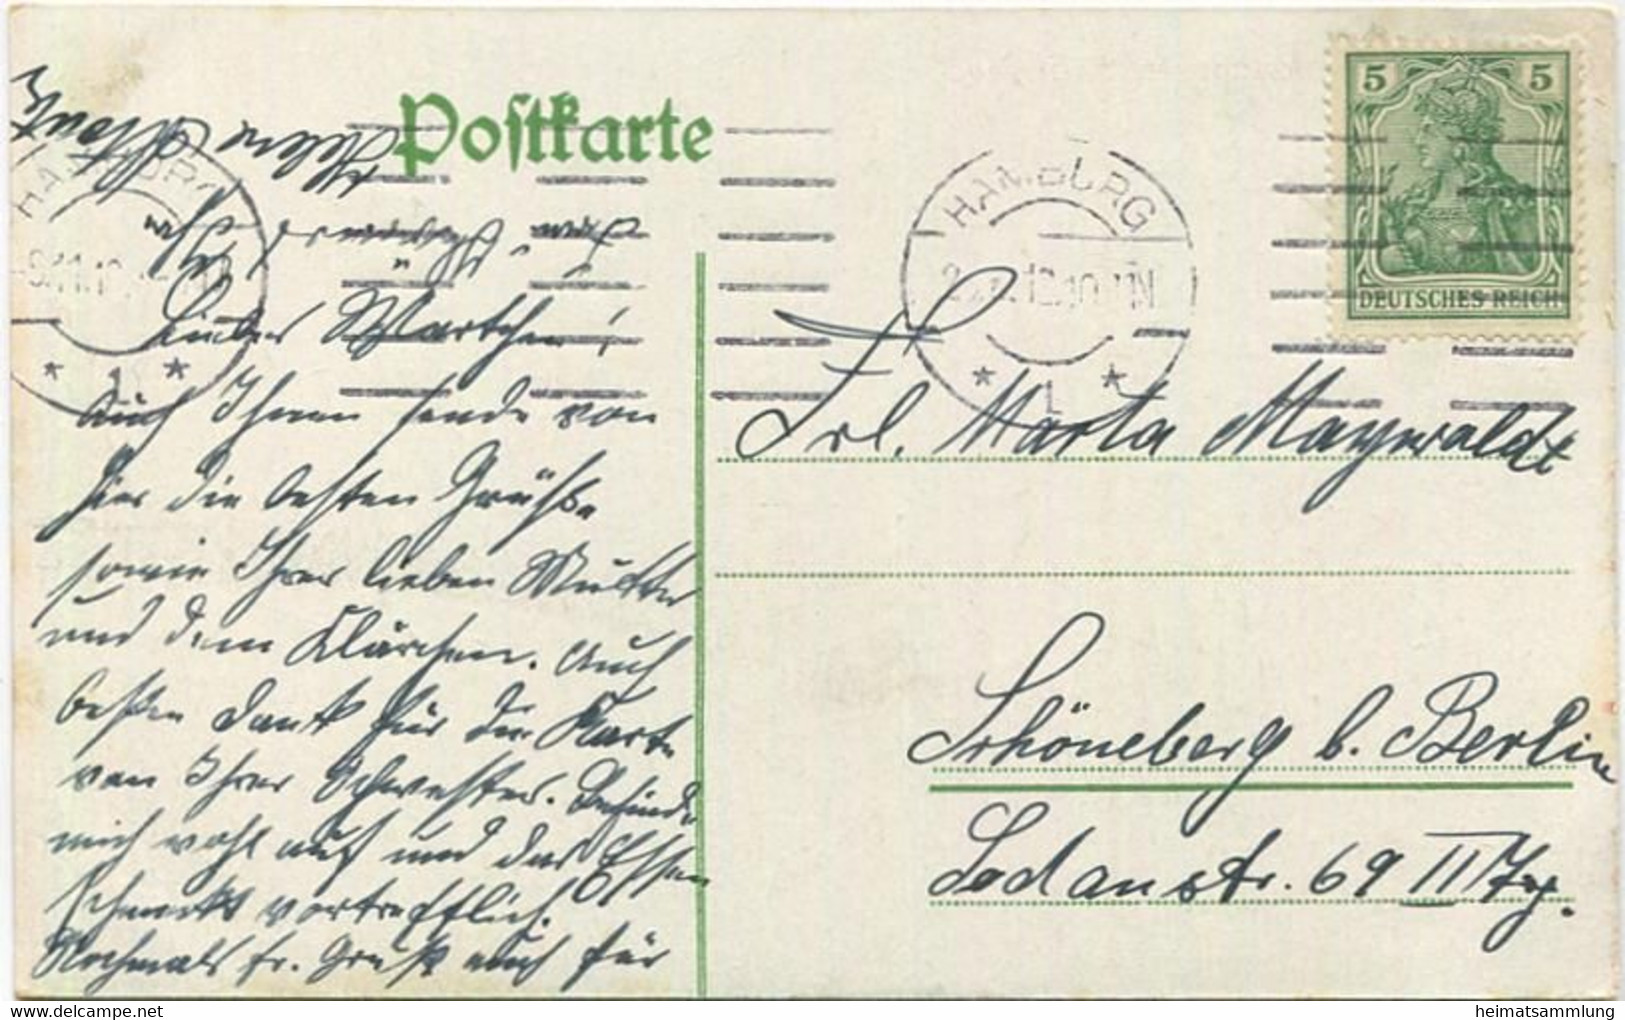 Postkarte
5 5
DEUTSCHES REICH
HAMBURG
HAMBURG
* 1 *
* 1 *
Liebes Martchen!
Auch Ihnen sende von
hier die besten Grüße
sowie Ihrer lieben Mutter
und dem Klärchen. Auch
besten Dank für die Karte
von Ihrer Schwester. Befinde
mich wohl auf und das Essen
schmeckt vortrefflich.
Nochmals fr. Gruß auch für
Frl. Marta Maywaldt
Schöneberg b. Berlin
Sedanstr. 69 II
heimatsammlung
https://www.delcampe.net